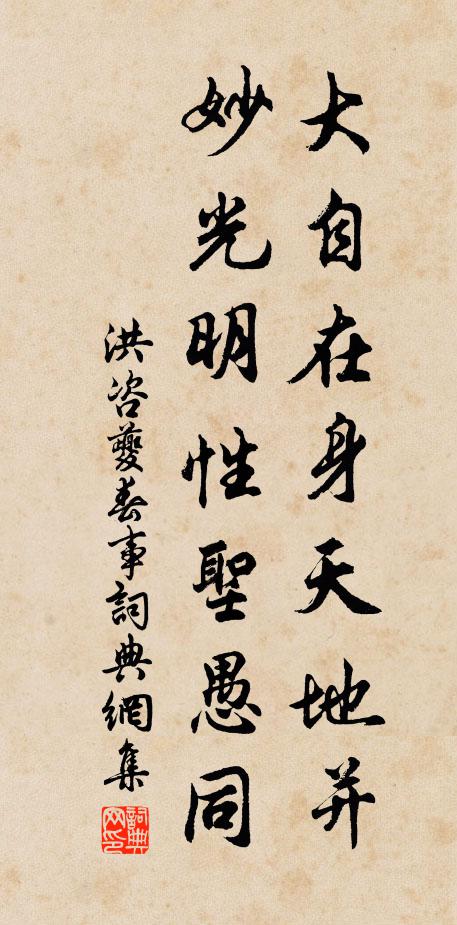 大自在身天地并
妙光明性聖愚同
洪咨夔春事詞典網集
詞典網印